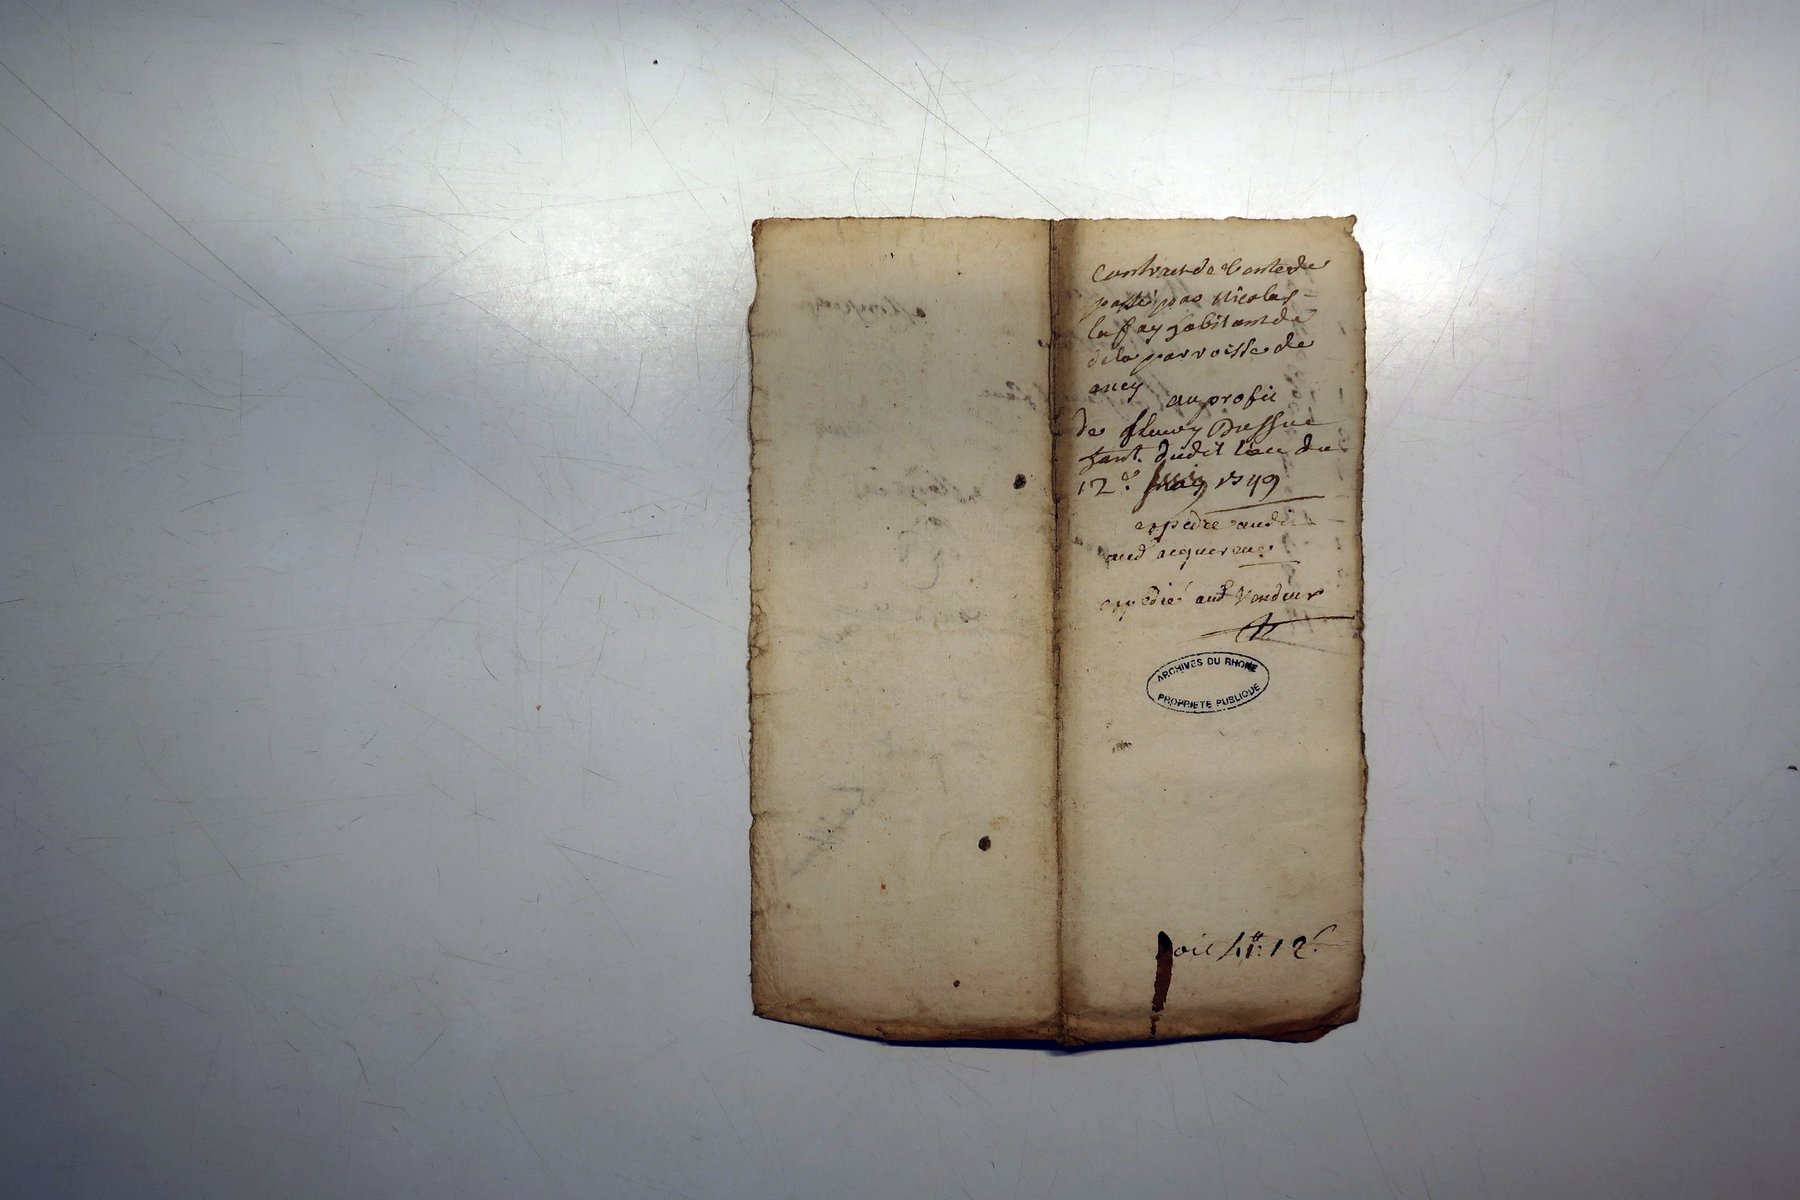 Contract de Vente de
passé par Nicolas
la fay habitant de
de la parroisse de
ancy
au profit
de fleury Dussuc
hant. dudit lieu du
12e 1749
expedié audit
aud acquereur
expedié aud Vendeur
ARCHIVES DU RHONE
PROPRIETE PUBLIQUE
Doit 4# 12s